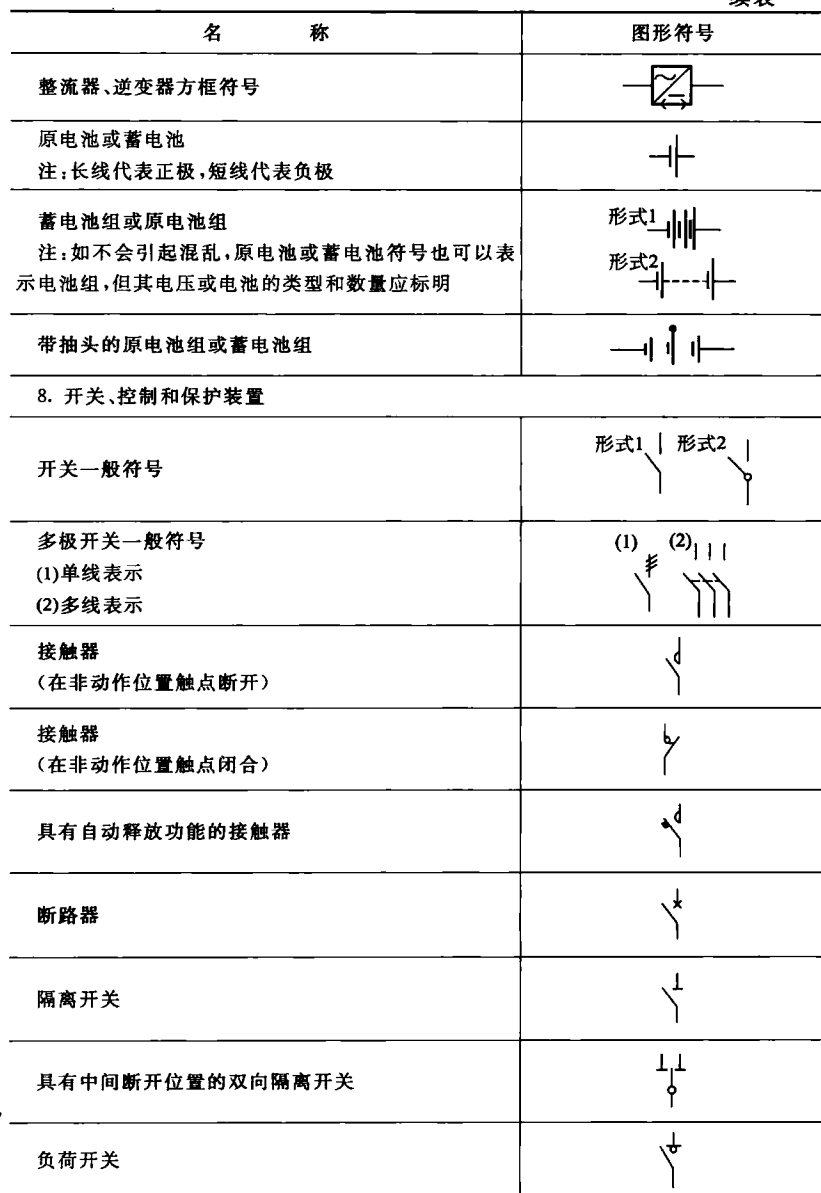 续表
名 称 图形符号
整流器、逆变器方框符号
原电池或蓄电池
注:长线代表正极,短线代表负极
蓄电池组或原电池组
注:如不会引起混乱,原电池或蓄电池符号也可以表
示电池组,但其电压或电池的类型和数量应标明
形式1
形式2
带抽头的原电池组或蓄电池组
8. 开关、控制和保护装置
开关一般符号
形式1 形式2
多极开关一般符号
(1)单线表示
(2)多线表示
(1) (2)
接触器
(在非动作位置触点断开)
接触器
(在非动作位置触点闭合)
具有自动释放功能的接触器
断路器
隔离开关
具有中间断开位置的双向隔离开关
负荷开关